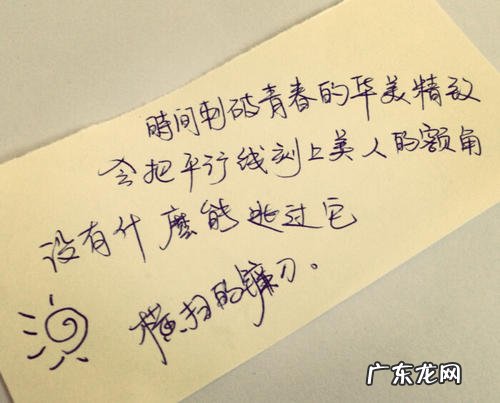 時間刺破青春的华美精致
会把平行线刻上美人的额角
没有什麼能逃过它
横扫的镰刀。
广东龙网